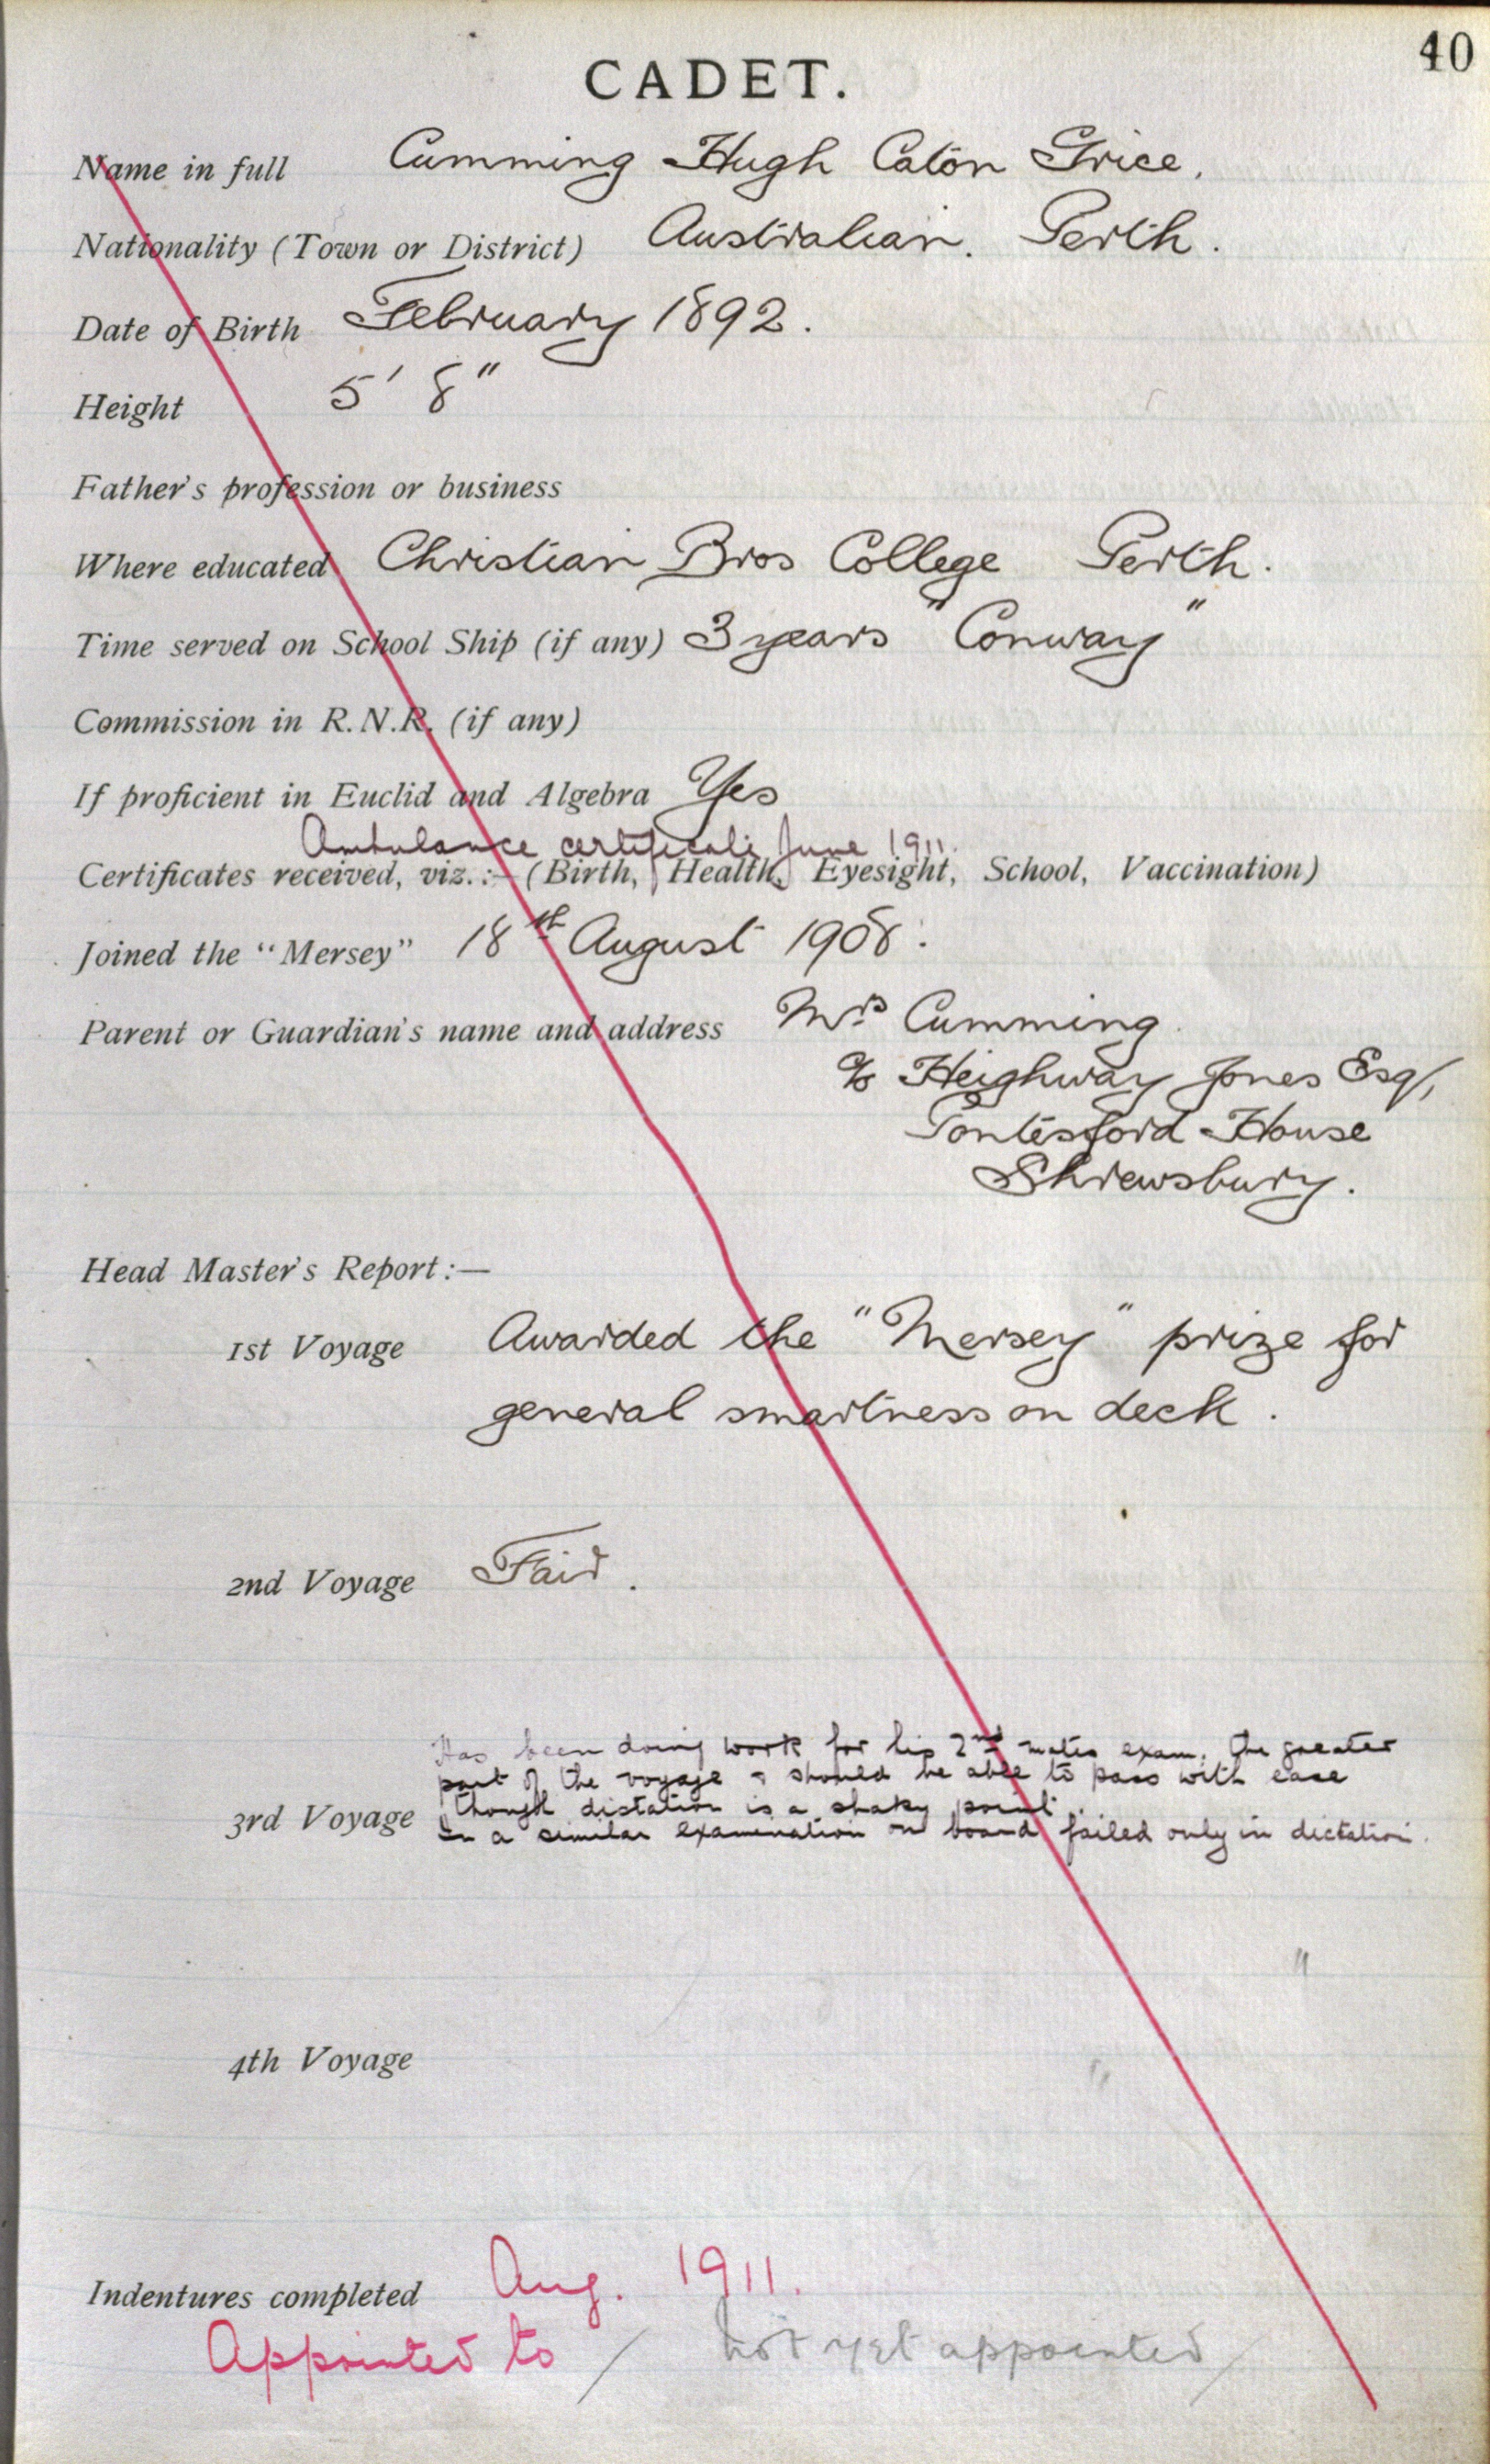 40
CADET.
Name in full Cumming Hugh Caton Grice.
Nationality (Town or District) Australian. Perth.
Date of Birth February 1892.
Height 5' 8"
Father's profession or business
Where educated Christian Bros College Perth.
Time served on School Ship (if any) 3 years "Conway"
Commission in R.N.R. (if any)
If proficient in Euclid and Algebra Yes
Ambulance certificate June 1911.
Certificates received, viz.:—(Birth, Health, Eyesight, School, Vaccination)
Joined the "Mersey" 18th August 1908.
Parent or Guardian's name and address Mrs Cumming
c/o Heighway Jones Esq,
Pontesford House
Shrewsbury.
Head Master's Report:—
1st Voyage Awarded the "Mersey" prize for
general smartness on deck.
2nd Voyage Fair.
Has been doing work for his 2nd mates exam. the greater
part of the voyage & should be able to pass with ease
though dictation is a shaky point.
3rd Voyage In a similar examination on board failed only in dictation.
4th Voyage
Indentures completed Aug. 1911.
Appointed to / not yet appointed /